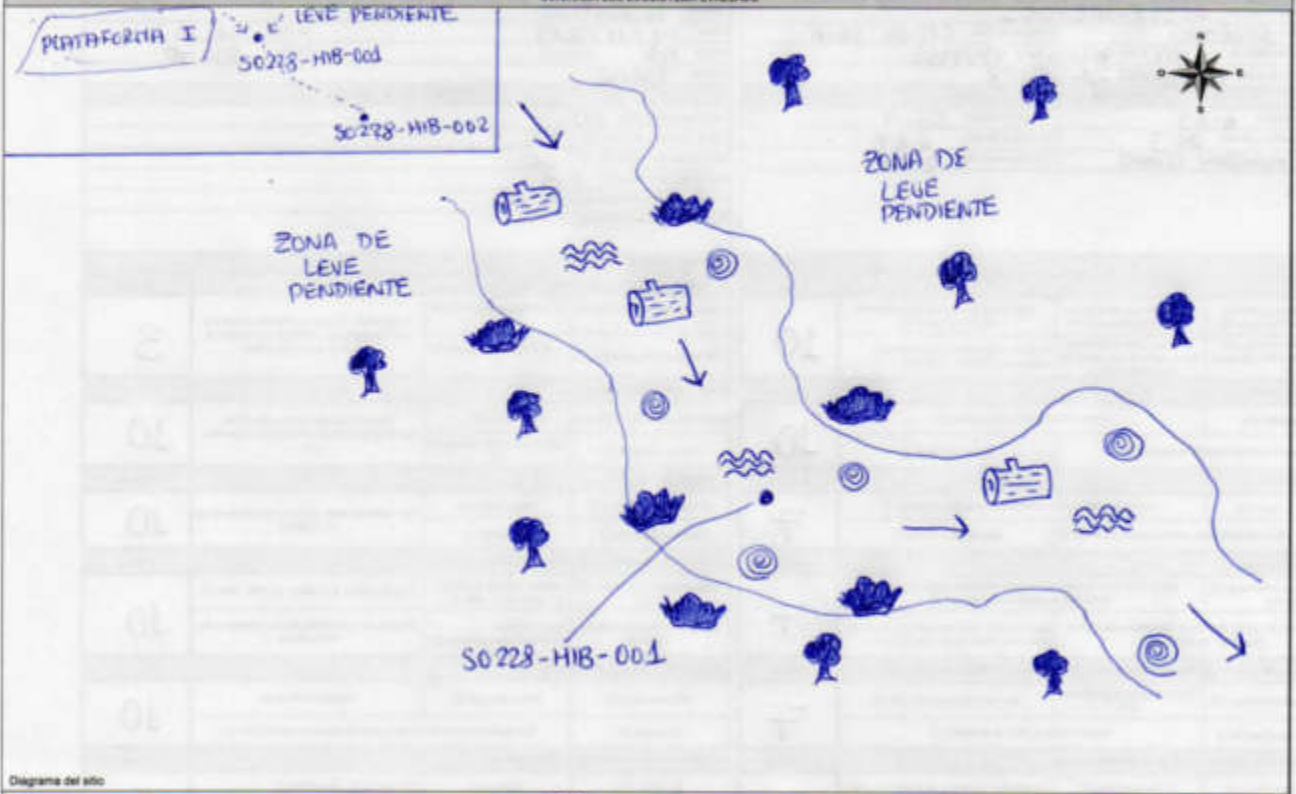 PLATAFORMA I
LEVE PENDIENTE
S0228-HIB-001
S0228-HIB-002
ZONA DE
LEVE
PENDIENTE
ZONA DE
LEVE
PENDIENTE
S0228-HIB-001
Diagrama del sitio